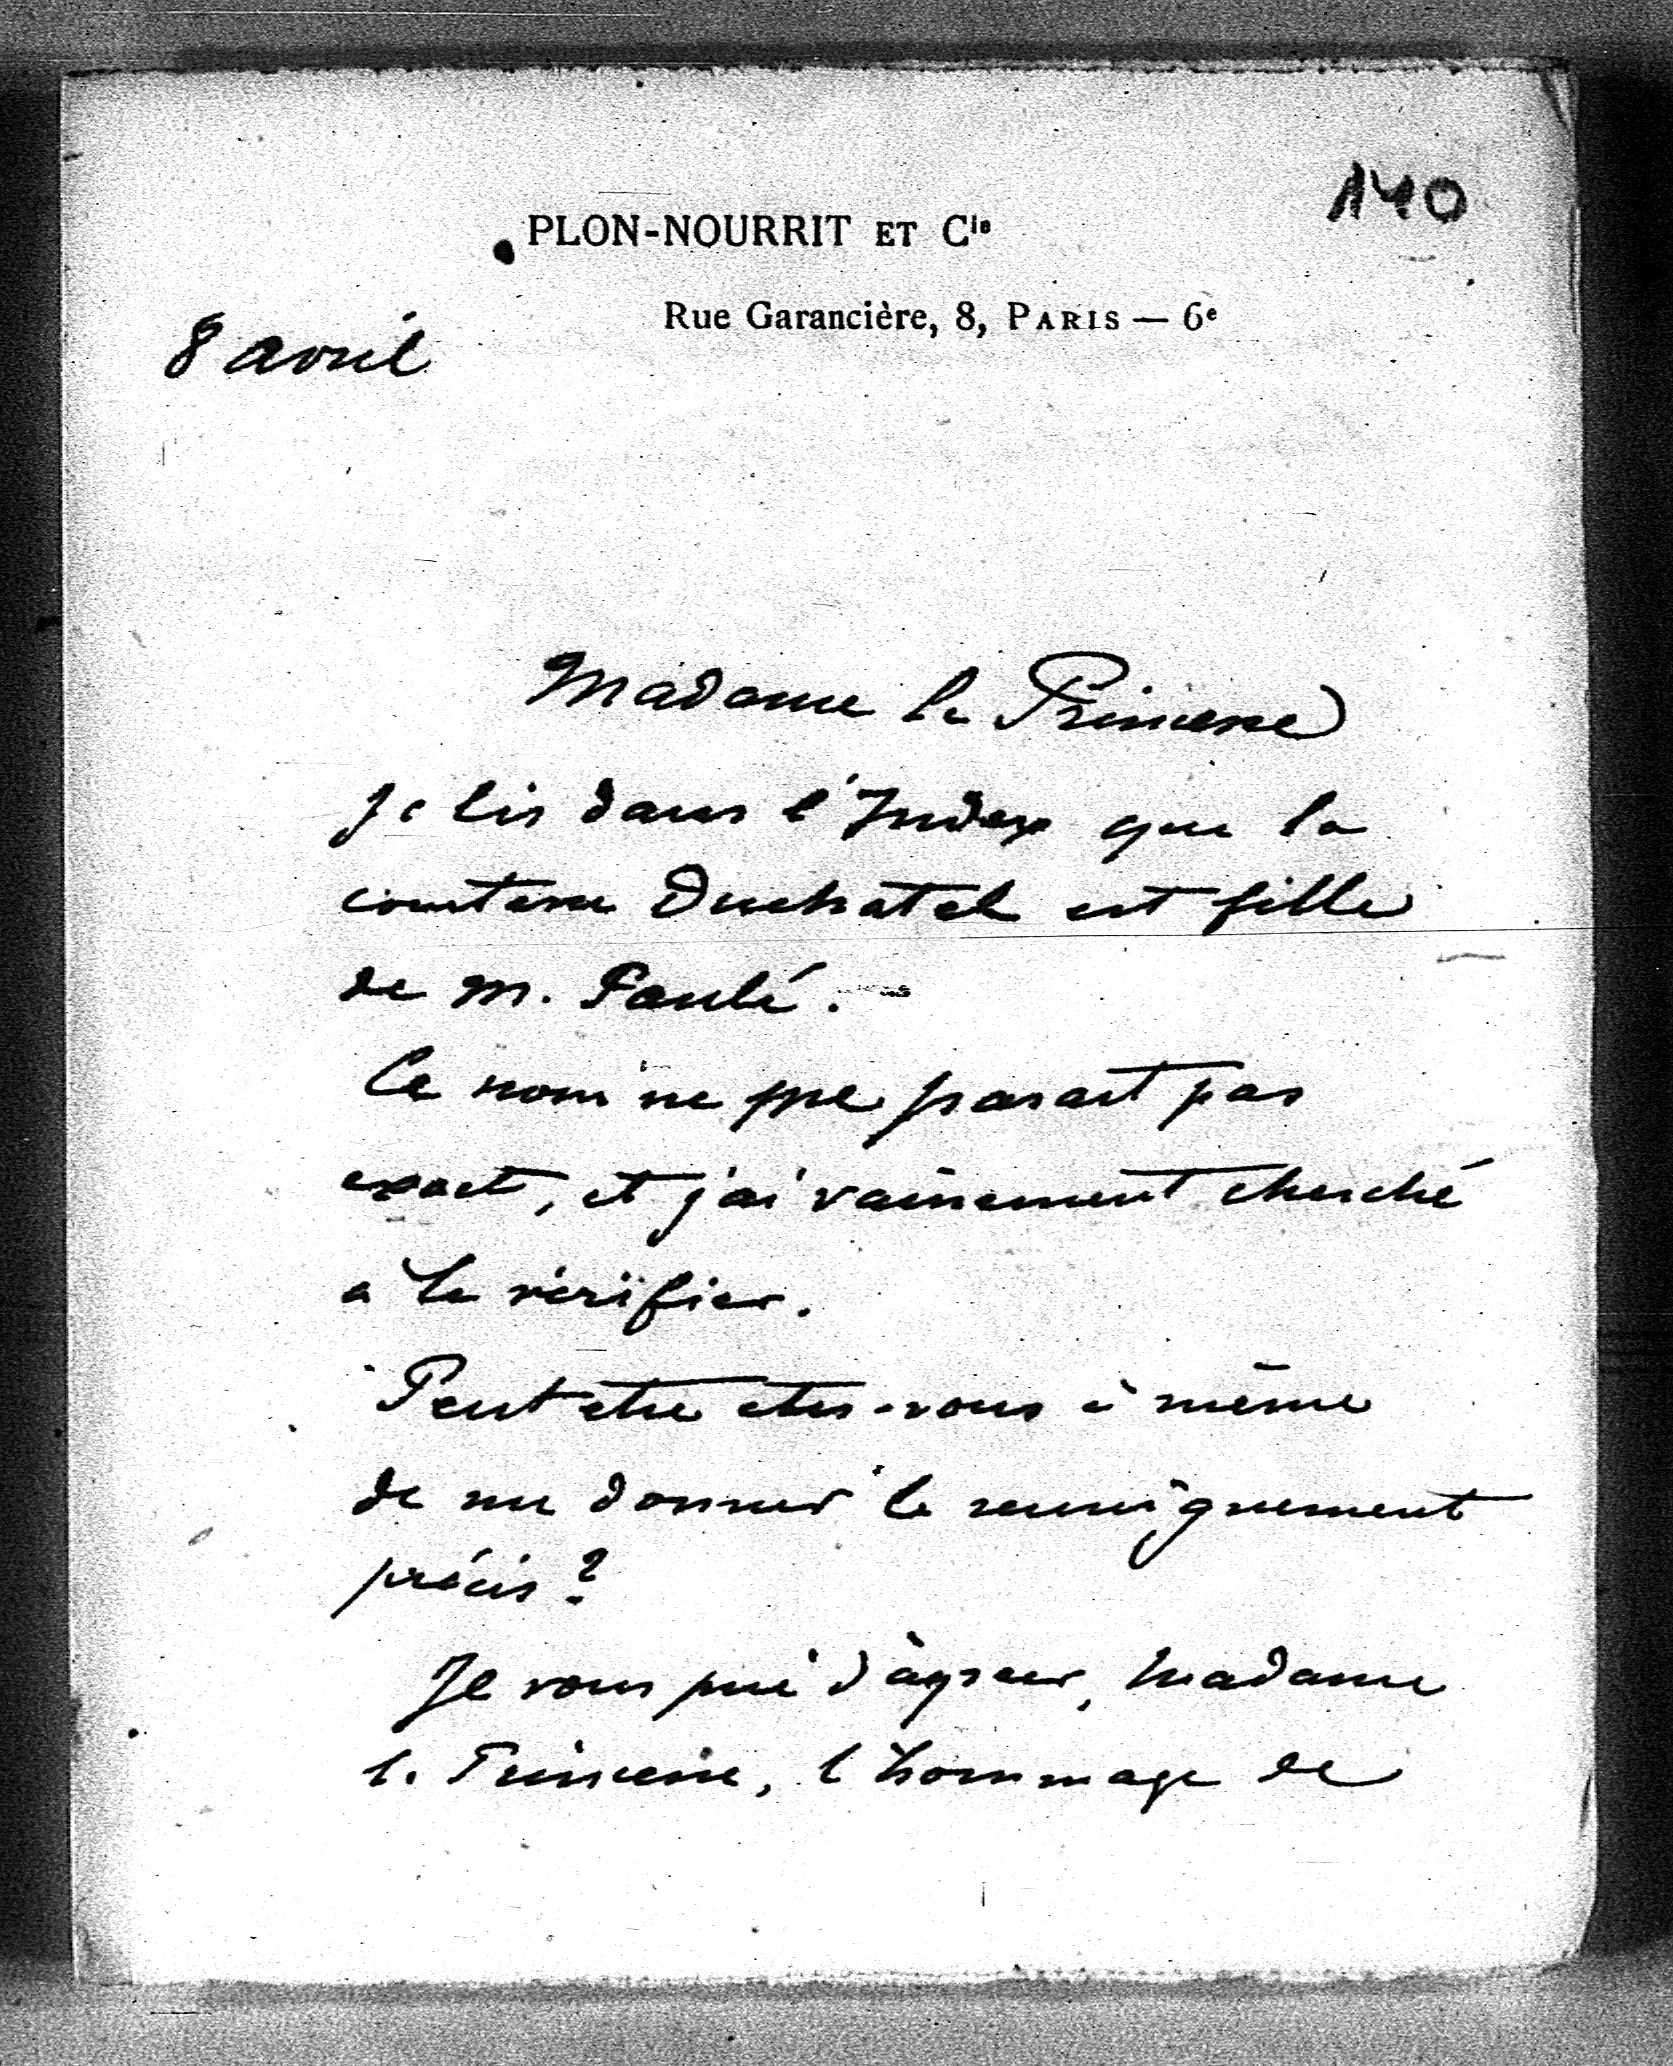 140
PLON-NOURRIT ET Cie
Rue Garancière, 8, PARIS — 6e
8 avril
Madame la Princesse
Je lis dans l'Index que la
comtesse Duchatel est fille
de M. Paulé.
Ce nom ne me parait pas
exact, et j'ai vainement cherché
à le vérifier.
Peut etre etes-vous à même
de me donner le renseignement
précis ?
Je vous prie d'agréer, Madame
la Princesse, l'hommage de